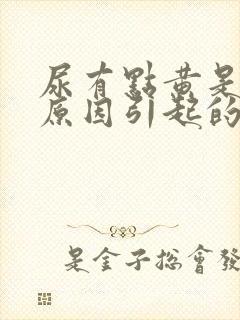 尿有點黄是
原因引起的
是金子総會發